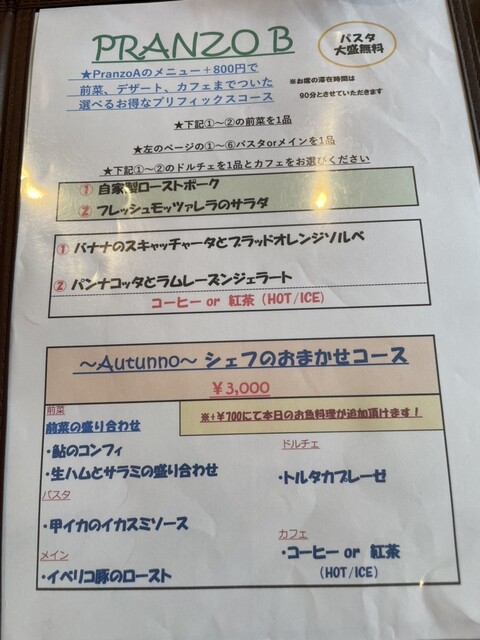 PRANZO B
パスタ
大盛無料
★PranzoAのメニュー+800円で
前菜、デザート、カフェまでついた
選べるお得なプリフィックスコース
※お席の滞在時間は
90分とさせていただきます
★下記①~②の前菜を1品
★左のページの①~⑥パスタorメインを1品
★下記①~②のドルチェを1品とカフェをお選びください
① 自家製ローストポーク
② フレッシュモッツァレラのサラダ
① バナナのスキャッチャータとブラッドオレンジソルベ
② パンナコッタとラムレーズンジェラート
コーヒー or 紅茶 (HOT/ICE)
~Autunno~ シェフのおまかせコース
¥3,000
※+¥700にて本日のお魚料理が追加頂けます!
前菜
前菜の盛り合わせ
・鮎のコンフィ
・生ハムとサラミの盛り合わせ
パスタ
・甲イカのイカスミソース
メイン
・イベリコ豚のロースト
ドルチェ
・トルタカプレーゼ
カフェ
・コーヒー or 紅茶
(HOT/ICE)